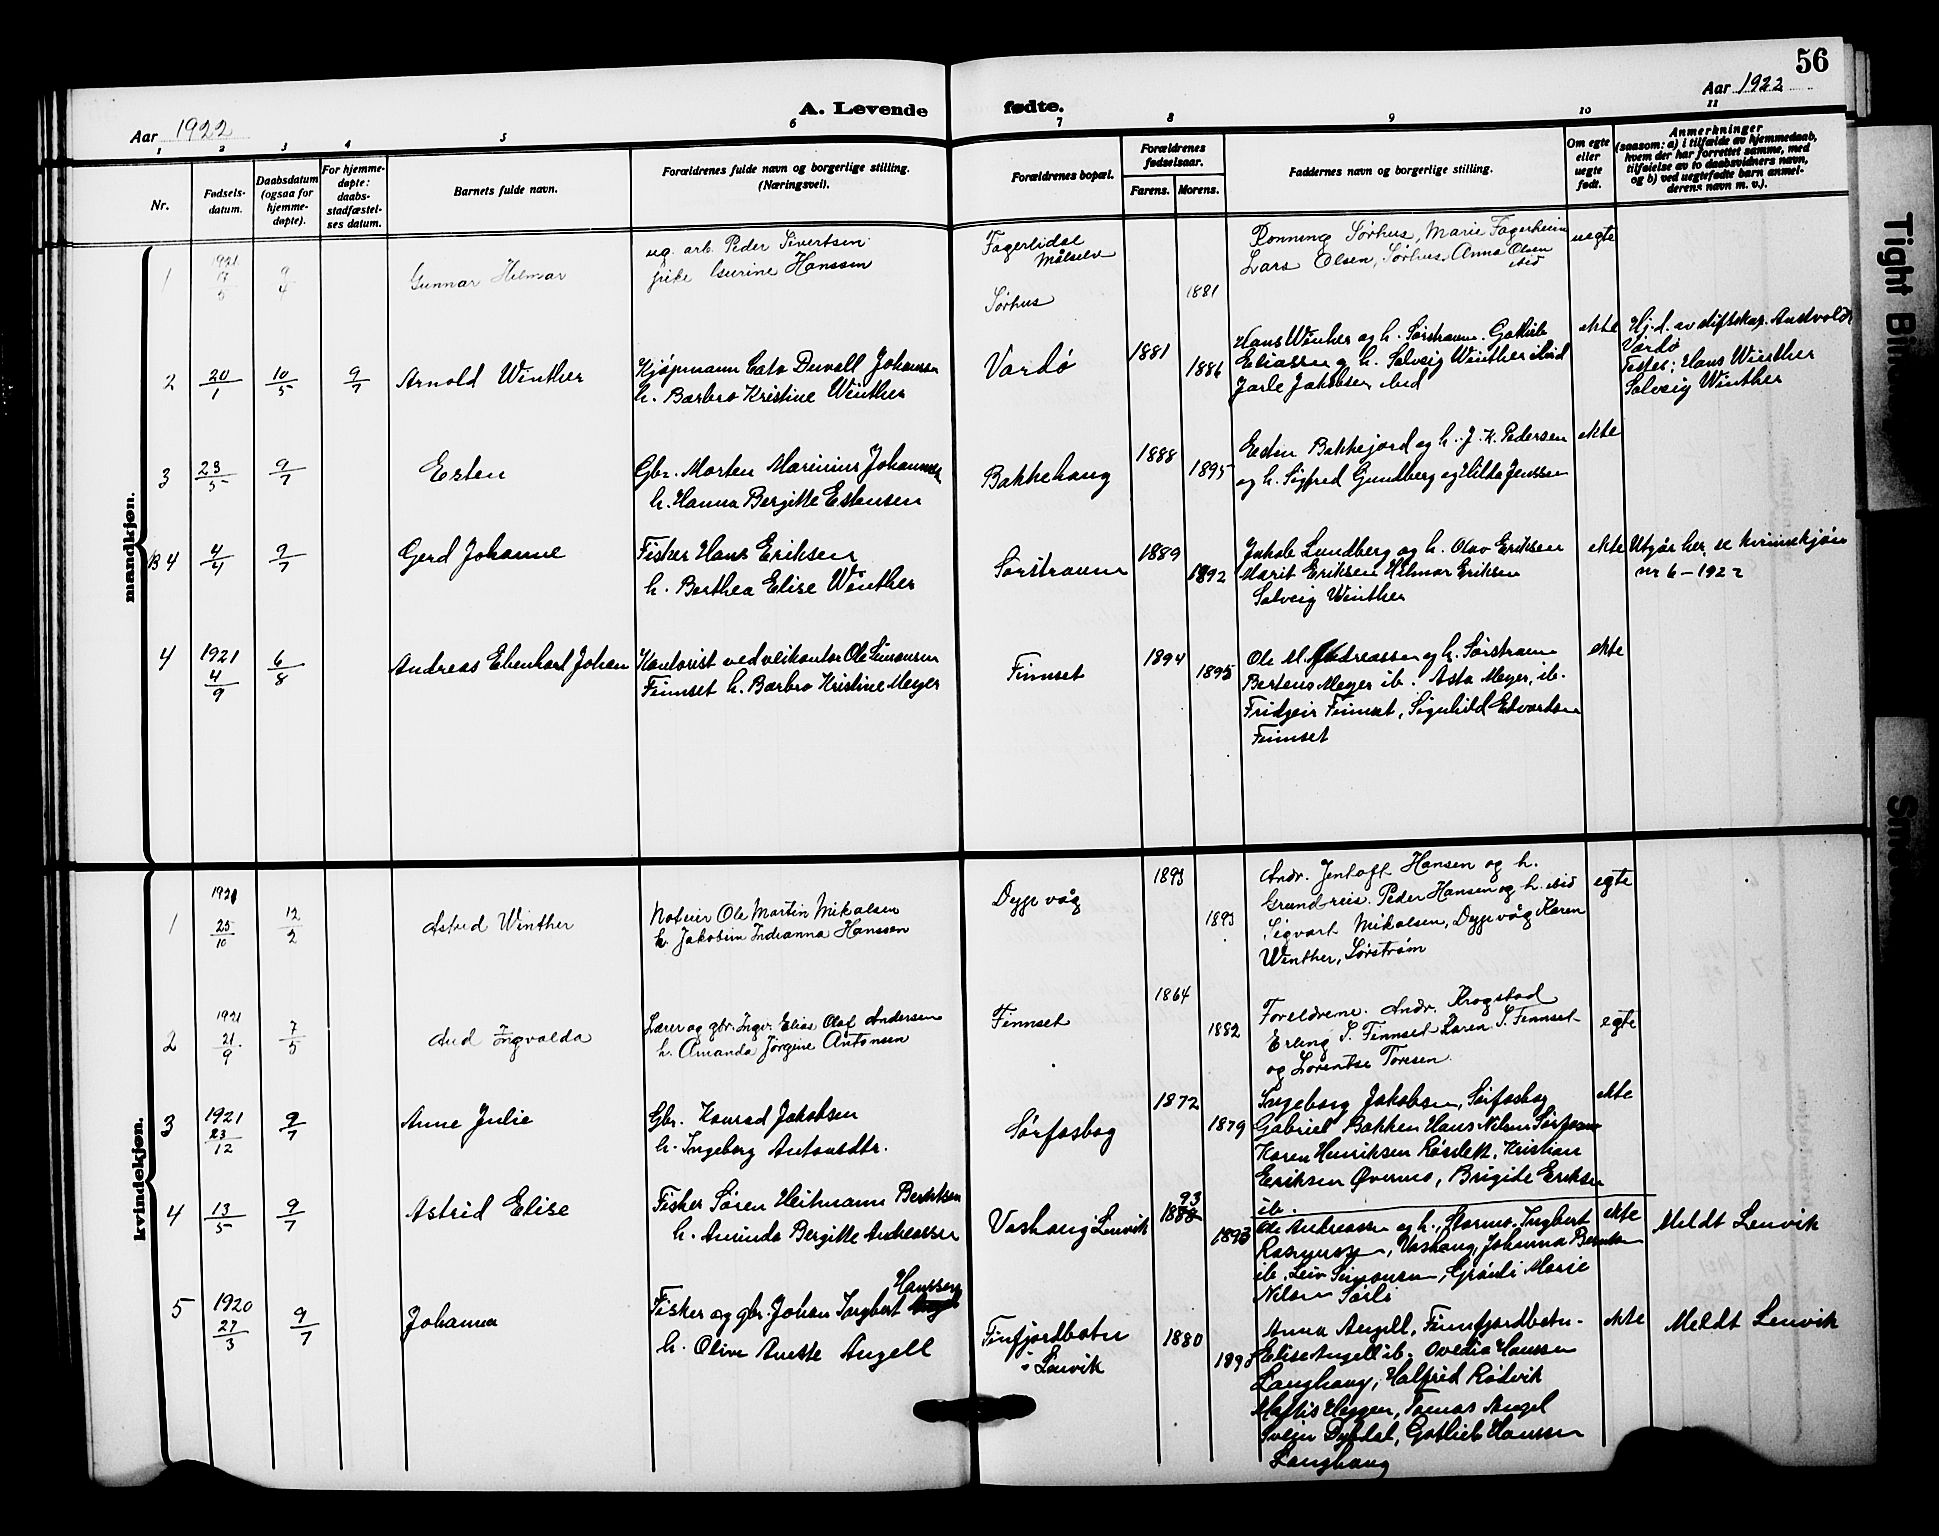 56
Aar 1922
A. Levende fødte.
Aar 1922
1 2 3 4 5 6 7 8 9 10 11
Nr.
Fødsels-
datum.
Daabsdatum
(ogsaa for
hjemme-
døpte).
For hjemme-
døpte:
daabs-
stadfæstel-
ses datum.
Barnets fulde navn.
Forældrenes fulde navn og borgerlige stilling.
(Næringsvei).
Forældrenes bopæl.
Forældrenes
fødselsaar.
Farens. Morens.
Faddernes navn og borgerlige stilling.
Om egte
eller
uegte
født.
Anmerkninger
(saasom: a) i tilfælde av hjemmedaab,
hvem der har forrettet samme, med
tilføielse av to daabsvidners navn,
og b) ved uegtefødte barn anmel-
derens navn m. v.).
mandkjøn.
1
1921
17/5
9/4
Gunnar Hilmar
ug. arb. Peder Sivertsen
pike Hanssen
Fagerlidal
Målselv
Sørhus
1881
Rønning Sørhus, Marie Fagerheim
Lars Olsen, Sørhus, Anna Olsen
ibid
uegte
2
20/1
10/5
9/7
Arnold Winther
Kjøpmann Cato Duvall Johansen
h. Barbro Kristine Winther
Vardø
1881
1886
Hans Winther og h. Sørstraum. Gotlieb
Eliassen og h. Solveig Winther ibid
Jarle Jakobsen ibid
ekte
Hj.d. av stiftskap. Austvoldt
Vardø
Testes: Hans Winther
Solveig Winther
3
23/5
9/7
Esten
Gbr. Morten Marinius Johannesen
h. Hanna Bergitte Estensen
Bakkehaug
1888
1895
Esten Bakkejord og h. J. K. Pedersen
og h. Sigfred Gundberg og Hilda Jenssen
ekte
B 4
4/4
9/7
Gerd Johanne
Fisker Hans Eriksen
h. Berthea Elise Winther
Sørstraum
1889
1892
Jakob Lundberg og h. Olav Eriksen
Marit Eriksen Hilmar Eriksen
Solveig Winther
ekte
Utgår her, se kvinnekjøn
nr 6 - 1922
4
1921
4/9
6/8
Andreas Ebenhard Johan
Kontorist ved veikontor Ole Simonsen
Finnset h. Barbro Kristine Meyer
Finnset
1894
1895
Ole M. Andreassen og h. Sørstraum
Bertens Meyer ib. Asta Meyer, ib.
Fridgeir Finnset, Signhild Edvartsen
Finnset
ekte
kvindekjøn.
1
1921
25/10
12/2
Astrid Winther
Notmer Ole Martin Mikalsen
h. Jakobine Indianna Hanssen
Dypvåg
1893
1893
Andr. Jentoft Hansen og h.
Grundreis. Peder Hansen og h. ibid
Sigvart Mikalsen, Dypvåg Karen
Winther, Sørstrøm
egte
2
1921
21/9
7/5
Aud Ingvalda
Lærer og gbr. Ingv. Elias Olaf Andersen
h. Amanda Jørgine Antonsen
Finnset
1864
1882
Foreldrene. Andr. Krogstad
Erling S. Finnset Karen S. Finnset
og Lorentse Toresen.
egte
3
1921
23/12
9/7
Anne Julie
Gbr. Konrad Jakobsen
h. Ingeborg Antonsdtr.
Sørfasbog
1872
1879
Ingeborg Jakobsen, Sørfasbog
Gabriel Bakken Hans Nilsen
Karen Henriksen Røslett, Kristian
Eriksen Øvermo, Brigide Eriksen
ib.
ekte
4
13/5
9/7
Astrid Elise
Fisker Søren Heitmann Berntsen
h. Aminda Bergitte Andreassen
Vashaug Lenvik
93
1888
1893
Ole Andreassen og h., Stormo, Ingbert
Rasmussen, Vashaug, Johanna Berntsen
ib. Leiv Simonsen, Grønli Marie
Nilsen Sørli
ekte
Meldt Lenvik
5
1920
27/3
9/7
Johanna
Hanssen
Fisker og gbr. Johan Ingbert
h. Olive Aneste Angell
Finfjordbotn
i Lenvik
1880
Anna Angell, Finnfjordbotn.
Elise Angell ib. Ovedia Hanssen
Langhaug, Halfrid Rødvik
Mattis Heggen, Tomas Angel
Svein Dybdal, Gotlieb Hanssen
Langhaug
ekte
Meldt Lenvik
Tight